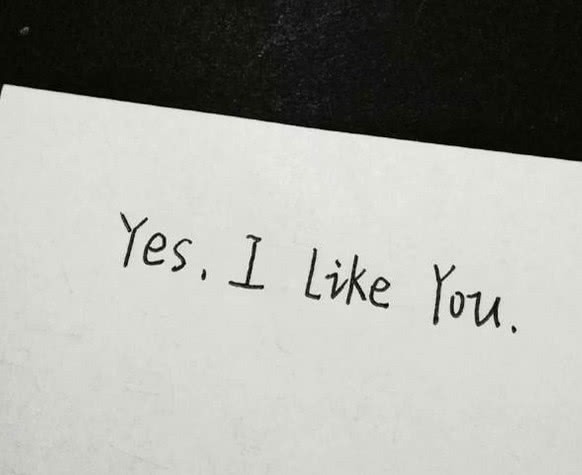 Yes, I Like You.